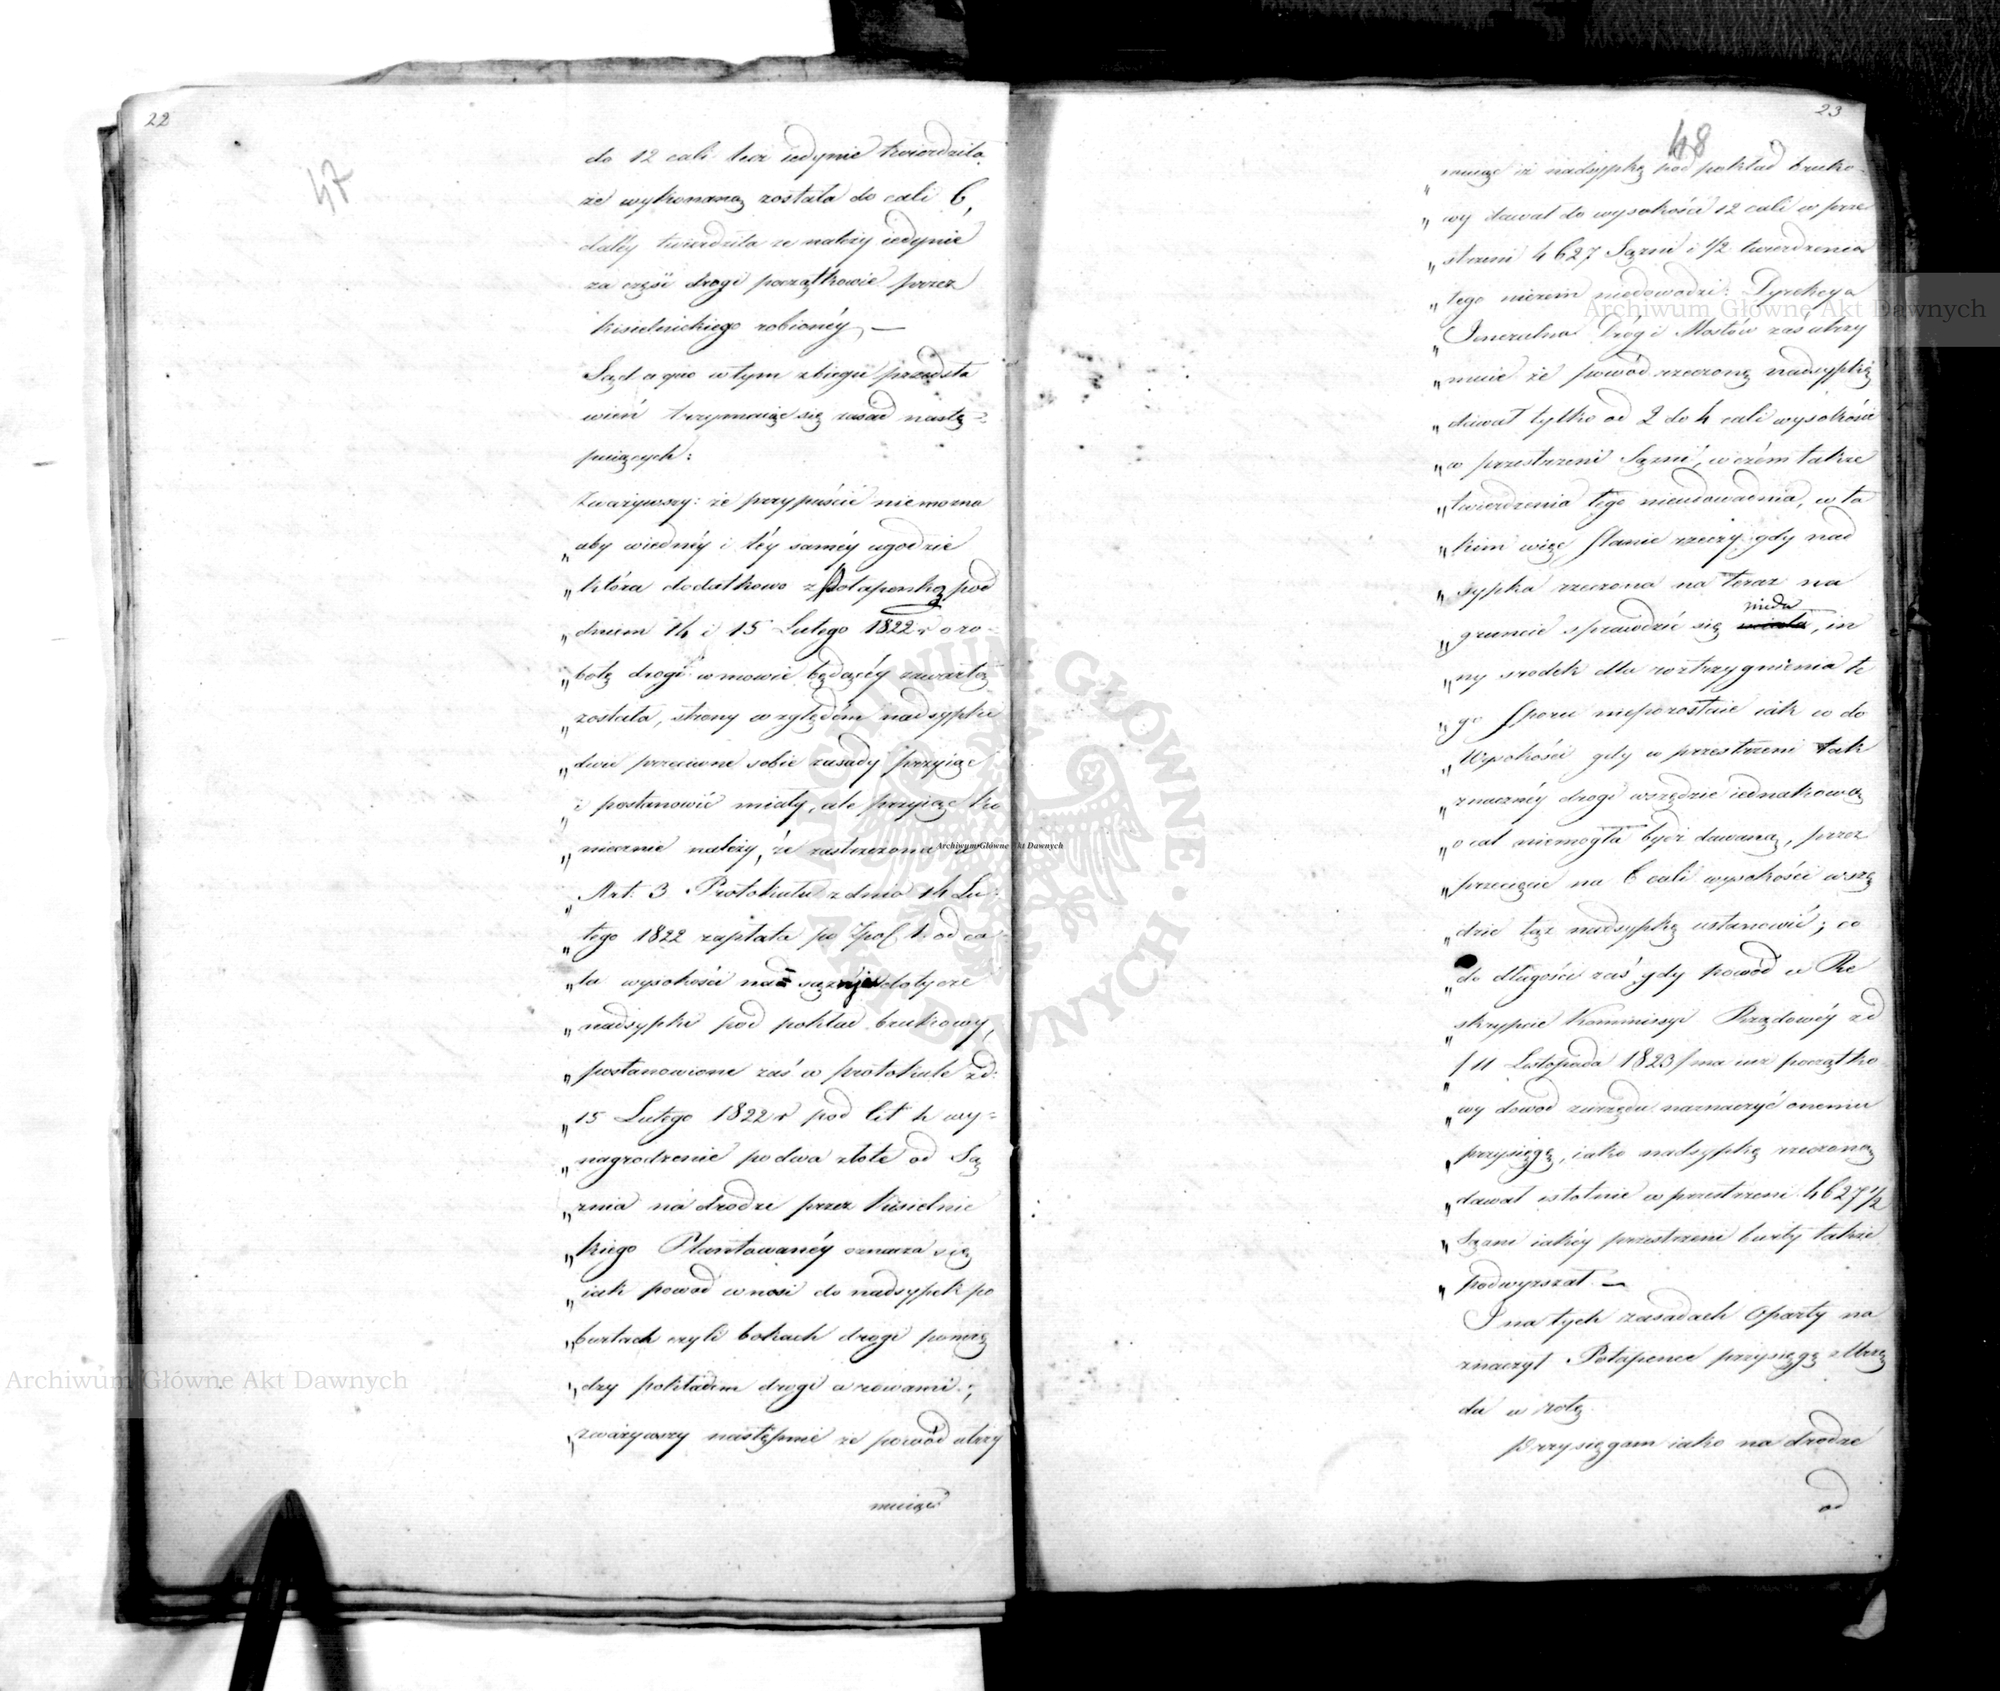 22
47
do 12 cali lecz iedynie twierdziła
że wykonaną została do cali 6,
daléy twierdziła ze należy iedynie
za część drogi początkowie przez
Kisielnickiego robionéy, —
Sąd a quo w tym zbiegu przedsta
wień trzymaiąc się zasad nastę=
puiących:
Zważywszy: że przypuścić nie mozna
„aby wiednéy i téy saméy ugodzie
„która dodatkowo z Potapenką pod
„dniem 14 i 15 Lutego 1822 r o ro-
„botę drogi w mowie będącéy zawartą
„została, strony względem nadsypki
„dwie przeciwne sobie zasady przyiąć
„i postanowić miały, ale przyiąć ko
„niecznie należy, że zastrzezona w
„Art: 3 Protokułu z dnia 14 Lu-
„tego 1822 zapłata po Zpol 1. od ca
„la wysokości na sążniu dotycze
„nadsypki pod pokład brukowy,
„postanowione zaś w protokule zd:
„15 Lutego 1822 r pod lit h wy=
„nagrodzenie po dwa złote od Są
„znia na drodze przez Kisielnic
„kiego Plantowanéy oznacza się
„iak powod wnosi do nadsypek po
„burtach czyli bokach drogi pomię
„dzy pokładem drogi a rowami.;
„zważywszy następnie ze powód utrzy
muiąc
23
48
„muiąc iż nadsypkę pod pokład bruko-
„wy dawał do wysokości 12 cali w prze
„strzeni 4627 Sążni i 1/2 twierdzenia
„tego niczem niedowodzi: Dyrekcya
„Jeneralna Dróg i Mostów zas utrzy
„muie że powód rzeczoną nadsypkę
„dawał tylko od 2 do 4 cali wysokości
„w przestrzeni Sążni, w czém takze
„twierdzenia tego nieudowadnia, w ta
„kim więc stanie rzeczy gdy nad
„sypka rzeczona na teraz na
nieda
„gruncie sprawdzić się miała, in
„ny srodek dla roztrzygnienia te
„go sporu niepozostaie iak co do
„Wysokości gdy w przestrzeni tak
„znacznéy drogi wszędzie iednakowa
„o cal niemogła bydź dawaną, przez
„przecięcie na 6 cali wysokości wszę
„dzie tąż nadsypkę ustanowić; co
„do długości zaś gdy powód w Re
„skrypcie Kommissyi Rządowéy zd
„/11 Listopada 1823/ ma iuz początko
„wy dowod zurzędu naznaczyć onemu
„przysięgę, iako nadsypkę rzeczoną
„dawał istotnie w przestrzeni 4627 1/2
„Sążni iakéy przestrzeni burty także
„podwyzszał. —
I na tych zasadach Oparty na
znaczył Potapence przysięgę zUrzę
du w rotę
Przysięgam iako na drodze
od
Archiwum Główne Akt Dawnych
Archiwum Główne Akt Dawnych
Archiwum Główne Akt Dawnych
ARCHIWUM GŁÓWNE AKT DAWNYCH